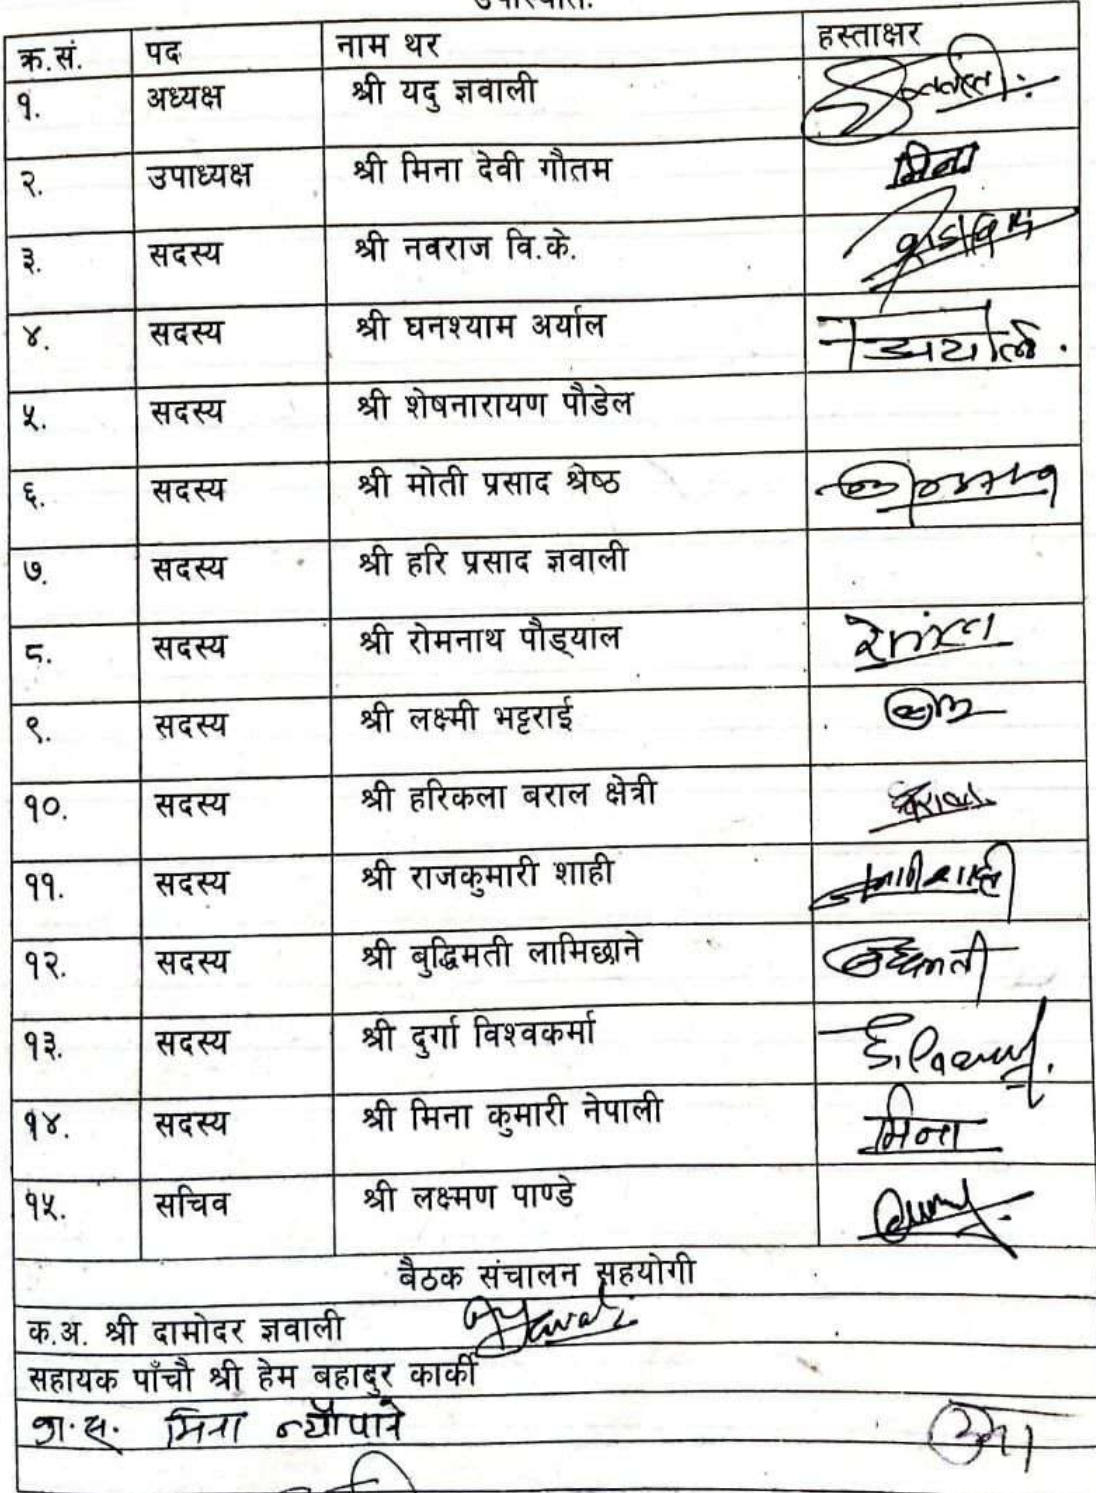 उपस्थितिः
क्र.सं. पद नाम थर हस्ताक्षर
१. अध्यक्ष श्री यदु ज्ञवाली
२. उपाध्यक्ष श्री मिना देवी गौतम मिना
३. सदस्य श्री नवराज वि.के.
४. सदस्य श्री घनश्याम अर्याल
५. सदस्य श्री शेषनारायण पौडेल
६. सदस्य श्री मोती प्रसाद श्रेष्ठ
७. सदस्य श्री हरि प्रसाद ज्ञवाली
८. सदस्य श्री रोमनाथ पौड्याल
९. सदस्य श्री लक्ष्मी भट्टराई
१०. सदस्य श्री हरिकला बराल क्षेत्री
११. सदस्य श्री राजकुमारी शाही
१२. सदस्य श्री बुद्धिमती लामिछाने
१३. सदस्य श्री दुर्गा विश्वकर्मा
१४. सदस्य श्री मिना कुमारी नेपाली मिना
१५. सचिव श्री लक्ष्मण पाण्डे
बैठक संचालन सहयोगी
क.अ. श्री दामोदर ज्ञवाली
सहायक पाँचौ श्री हेम बहादुर कार्की
का.स. मिना न्यौपाने